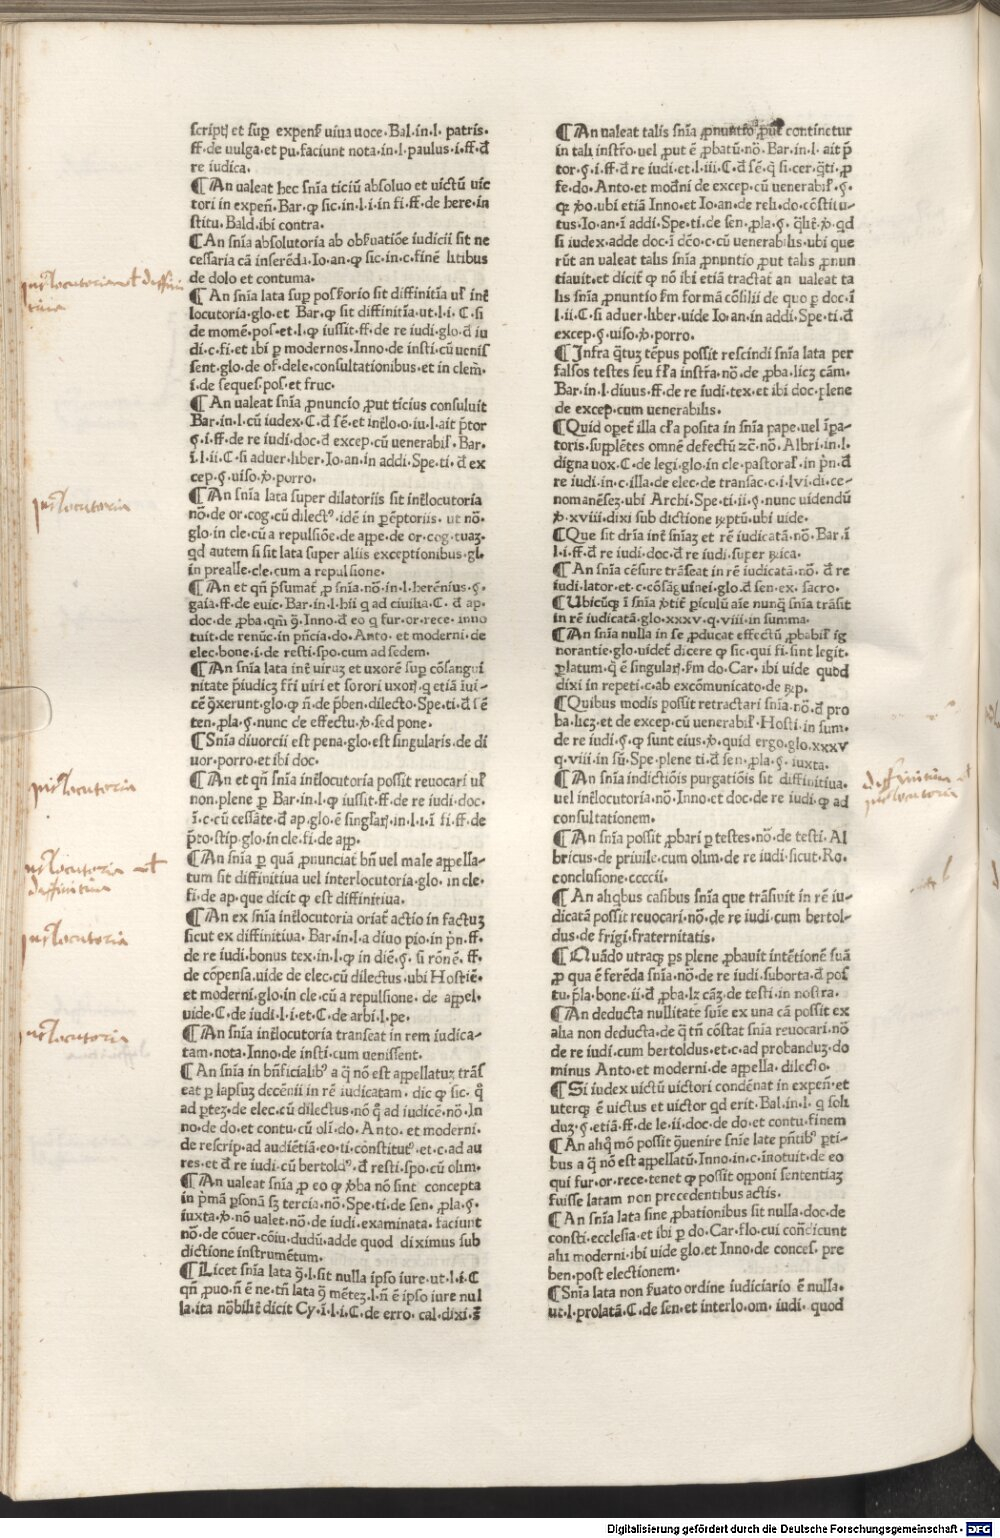 script̄ et suꝑ expens̄ uiua uoce. Bal. in. l. patris.
ff. de uulga. et pu. faciunt nota. in. l. paulus. i. ff. đ
re iudica.
¶ An ualeat hec snīa ticiū absoluo et uictū uic
tori in expen̄. Bar. ꝙ sic. in. l. i. in fi. ff. de here. in
stitu. Bald. ibi contra.
¶ An snīa absolutoria ab obs̄uatiōe iudicii sit ne
cessaria cā inserēda. Io. an. ꝙ sic. in. c. finē litibus
de dolo et contuma.
¶ An snīa lata suꝑ poss̄orio sit diffinitīa ul̄ int̄
locutoria. glo. et Bar. ꝙ sit diffinitīa. ut. l. i. C. si
de momē. pos. et. l. ꝙ iussit. ff. de re iudi. glo. đ iu
di. c. fi. et ibi ꝑ modernos. Inno. de insti. cū uenis
sent. glo. de of. dele. consultationibus. et in clem̄.
i. de seques. pos. et fruc.
¶ An ualeat snīa ꝓnuncio ꝓut ticius consuluit
Bar. in. l. cū iudex. C. đ sē. et int̄lo. o. iu. l. ait p̄tor
§. i. ff. de re iudi. doc. đ excep. cū uenerabil̄. Bar.
ī. l. ii. C. si aduer. liber. Io. an. in addi. Spe. ti. đ ex
cep. §. uiso. ꝟ. porro.
¶ An snīa lata super dilatoriis sit int̄locutoria
nō. de or. cog. cū dilectꝰ. idē in ꝑēptoriis. ut nō.
glo. in cle. cū a repulsiōe. de appe. de or. cog. tuaꝫ.
qd autem si sit lata super aliis exceptionibus. gl.
in prealle. cle. cum a repulsione.
¶ An et qn̄ p̄sumat᷑ ꝓ snīa. nō. in. l. herēnius. §.
gaia. ff. de euic. Bar. in. l. hii q ad ciuilia. C. đ ap.
doc. de ꝓba. qm̄ ꝯ. Inno. đ eo q fur. or. rece. inno
tuit. de renūc. in pn̄cia. do. Anto. et moderni. de
elec. bone. i. de resti. spo. cum ad sedem.
¶ An snīa lata int̄ uiruꝫ et uxorē suꝑ cōsangui
nitate p̄iudicꝫ fr̄i uiri et sorori uxorꝭ. q etiā iui-
cē ꝯxerunt. glo. ꝙ n̄. de p̄ben. dilecto. Spe. ti. đ sē
ten. ꝓla. §. nunc de effectu. ꝟ. sed pone.
¶ Snīa diuorcii est pena. glo. est singularis. de di
uor. porro. et ibi doc.
¶ An et qn̄ snīa int̄locutoria possit reuocari ul̄
non. plene ꝑ Bar. in. l. ꝙ iussit. ff. de re iudi. doc.
ī. c. cū cessāte. đ ap. glo ē sing̃larꝭ. in. l. i. ī fi. ff. de
p̄to. stip. glo. in cle. fi. de app.
¶ An snīa ꝑ quā ꝓnunciat᷑ bn̄ uel male appella-
tum sit diffinitiua uel interlocutoria. glo. in cle.
fi. de ap. que dicit ꝙ est diffinitiua.
¶ An ex snīa int̄locutoria oriat᷑ actio in factuꝫ
sicut ex diffinitiua. Bar. in. l. a diuo pio. in p̄n. ff.
de re iudi. bonus tex. in. l. ꝙ in diē. §. si rōnē. ff.
de cōpensa. uide de elec. cū dilectus. ubi Hostiē.
et moderni. glo. in cle. cū a repulsione. de appel.
uide. C. de iudi. l. i. et. C. de arbi. l. pe.
¶ An snīa int̄locutoria transeat in rem iudica-
tam. nota. Inno. de insti. cum uenissent.
¶ An snīa in bn̄ficialibꝰ a q̄ nō est appellatuꝫ trās
eat ꝑ lapsuꝫ decēnii in rē iudicatam. dic ꝙ sic. qͦ
ad ꝑteꝫ. de elec. cū dilectus. nō qͦ ad iudicē. nō. In
no. de do. et contu. cū oli. do. Anto. et moderni.
de rescrip. ad audiētiā. eo. ti. constitutꝰ. et. c. ad au
res. et đ re iudi. cū bertoldꝰ. đ resti. spo. cū olim.
¶ An ualeat snīa ꝓ eo ꝙ ꝟba nō sint concepta
in p̄mā ꝑsonā sꝫ tercia. nō. Spe. ti. de sen. ꝓla. §.
iuxta. ꝟ. nō ualet. nō. de iudi. examinata. faciunt
nō. de cōuer. cōiu. dudū. adde quod diximus sub
dictione instrumētum.
¶ Licet snīa lata ꝯ. l. sit nulla ipso iure. ut. l. i. C
qn̄ ꝓuo. n̄ ē ne. tn̄ lata ꝯ mēteꝫ. l. n̄ ē ipso iure nul
la. ita nōbilit᷑ dicit Cy. ī. l. i. C. de erro. cal. dixi. ꝫ
¶ An ualeat talis snīa ꝓnuntio ꝓut continetur
in tali instr̄o. uel ꝓut ē ꝓbatū. nō. Bar. in. l. ait p̄
tor. §. i. ff. đ re iudi. et. l. iii. C. đ sē. q̄ si. cer. q̄ti. ꝓ
fe. do. Anto. et mođni de excep. cū uenerabil̄. §.
qꝫ ꝟo. ubi etiā Inno. et Io. an. de reli. do. cōstitu-
tus. Io. an. ī addi. Spe. ti. de sen. ꝓla. §. q̄lit̄. ꝟ. qd
si iudex. adde doc. ī dc̄o. c. cū uenerabilis. ubi que
rūt an ualeat talis snīa ꝓnuntio ꝓut talis ꝓnun
tiauit. et dicit᷑ ꝙ nō ibi etiā tractat an ualeat ta
lis snīa ꝓnuntio s̄m formā cōsilii de quo ꝑ doc. ī
l. ii. C. si aduer. liber. uide Io. an. in addi. Spe. ti. đ
excep. §. uiso. ꝟ. porro.
¶ Infra q̄tuꝫ tēpus possit rescindi snīa lata per
falsos testes seu fl̄a instr̄a. nō. de ꝓba. licꝫ cām.
Bar. in. l. diuus. ff. de re iudi. tex. et ibi doc. plene
de excep. cum uenerabilis.
¶ Quid oꝑet᷑ illa cl̄a posita in snīa pape. uel īꝑa-
toris. supplētes omnē defectū ꝛc̄. nō. Albri. in. l.
digna uox. C. de legi. glo. in cle. pastoral̄. in p̄n. đ
re iudi. in. c. illa. de elec. de transac. c. i. lvi. di. ce-
nomanēseꝫ. ubi Archi. Spe. ti. ii. §. nunc uidendū
ꝟ. xviii. dixi sub dictione ꝶptū. ubi uide.
¶ Que sit dr̄ia int̄ snīaꝫ et rē iudicatā. nō. Bar. ī
l. i. ff. đ re iudi. doc. đ re iudi. super ꝶica.
¶ An snīa cēsure trāseat in rē iudicatā. nō. đ re
iudi. lator. et. c. cōsāguinei. glo. đ sen. ex. sacro.
¶ Ubicūqꝫ ī snīa ꝟtit᷑ ꝑiculū aīe nunq̄ snīa trāsit
in rē iudicatā. glo. xxxv. q. viii. in summa.
¶ An snīa nulla in se ꝓducat effectū ꝓbabil̄ ig
norantie. glo. uidet᷑ dicere ꝙ sic. qui fi. sint legit.
ꝑ latum. q̄ ē singularꝭ. s̄m do. Car. ibi uide quod
dixi in repeti. c. ab excōmunicato. de ꝶp.
¶ Quibus modis possit retractari snīa. nō. đ pro
ba. licꝫ. et de excep. cū uenerabil̄. Hosti. in sum.
de re iudi. §. ꝙ sunt eius. ꝟ. quid ergo. glo. xxxv
q. viii. in sū. Spe. plene ti. đ sen. ꝓla. §. iuxta.
¶ An snīa indictiōis purgatiōis sit diffinitiua.
uel int̄locutoria. nō. Inno. et doc. de re iudi. ꝙ ad
consultationem.
¶ An snīa possit ꝓbari ꝑ testes. nō. de testi. Al
bricus. de priuile. cum olim. de re iudi. sicut. Ro.
conclusione. ccccii.
¶ An aliqbus casibus snīa que trāsiuit in rē iu-
dicatā possit reuocari. nō. de re iudi. cum bertol-
dus. de frigi. fraternitatis.
¶ Quādo utraqꝫ ꝑs plene ꝓbauit intētionē suā
ꝓ qua ē ferēda snīa. nō. de re iudi. suborta. đ pos
tu. p̄la. bone. ii. đ ꝓba. lꝫ cāꝫ. de testi. in nostra.
¶ An deducta nullitate suīe ex una cā possit ex
alia non deducta. de q̄ tn̄ cōstat snīa reuocari. nō
de re iudi. cum bertoldus. et. c. ad probanduꝫ. do
minus Anto. et moderni. de appella. dilecto.
¶ Si iudex uictū uictori condēnat in expen̄. et
uterqꝫ ē uictus et uictor qd erit. Bal. in. l. q soli
duꝫ. §. etiā. ff. de le. ii. doc. de do. et contu. finem
¶ An aliq̄ mō possit ꝯuenire snīe late pn̄tibꝰ ꝑti-
bus a q̄ nō est appellatū. Inno. in. c. inotuit. de eo
qui fur. or. rece. tenet ꝙ possit opponi sententiaꝫ
fuisse latam non precedentibus actis.
¶ An snīa lata sine ꝓbationibus sit nulla. doc. de
consti. ecclesia. et ibi ꝑ do. Car. flo. cui con̄dicunt
alii moderni. ibi uide glo. et Inno. de conces. pre
ben. post electionem.
¶ Snīa lata non s̄uato ordine iudiciario ē nulla.
ut. l. prolatā. C. de sen. et interlo. om. iudi. quod
Digitalisierung gefördert durch die Deutsche Forschungsgemeinschaft - DFG